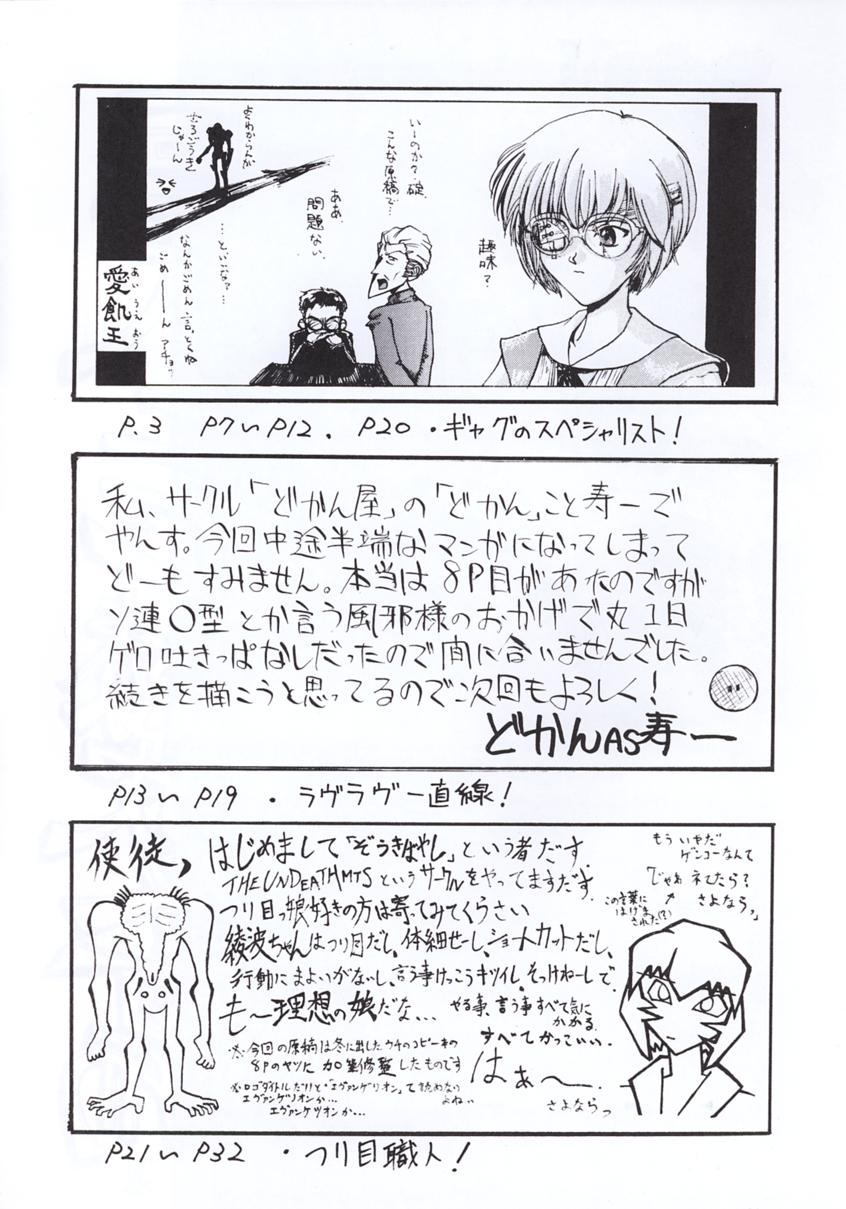 いーのか?碇、
こんな原稿で…
ああ、
問題ない。
…といいな?…
なんかごめん言っとくね
ごめーーん アチョッ
よくわからんが
じゃーん
趣味?
愛飢王
あい うえ おう
P.3 P7〜P12. P20・ギャグのスペシャリスト!
私、サークル「どかん屋」の「どかん」こと寿一で
やんす。今回中途半端なマンガになってしまって
どーもすみません。本当は8P目があたのですが
ソ連○型とか言う風邪様のおかげで丸1日
ゲロ吐きっぱなしだったので間に合いませんでした。
続きを描こうと思ってるので次回もよろしく!
どかんAS寿一
P13〜P19・ラヴラヴ一直線!
使徒、
はじめまして「ぞうきばやし」という者だす。
THE UNDEATHMTSというサークルをやってますだす。
つり目っ娘好きの方は寄ってみてくうさい
綾波ちゃんはつり目だし、体細せーし、ショートカットだし、
行動にまよいがないし、言う事けっこうキツイし、そっけねーしで、
も〜理想の娘だな...
やる事、言う事すべて気に
かかる。
すべてかっこいい。
はぁ〜
さよならっ
※今回の原稿は冬に出したウチのコピー本の
8Pのヤツに加筆修整したものです
※ロゴタイトルだけど・「エヴァンゲリオン」て読めない
よねぃ
エヴァンゲリオンか...
エヴァンケツオンか...
もういやだ
ゲンコーなんて
「じゃあネてたら?
さよなら」
この言葉に
はげま
された(?)
P21〜P32・つり目職人!